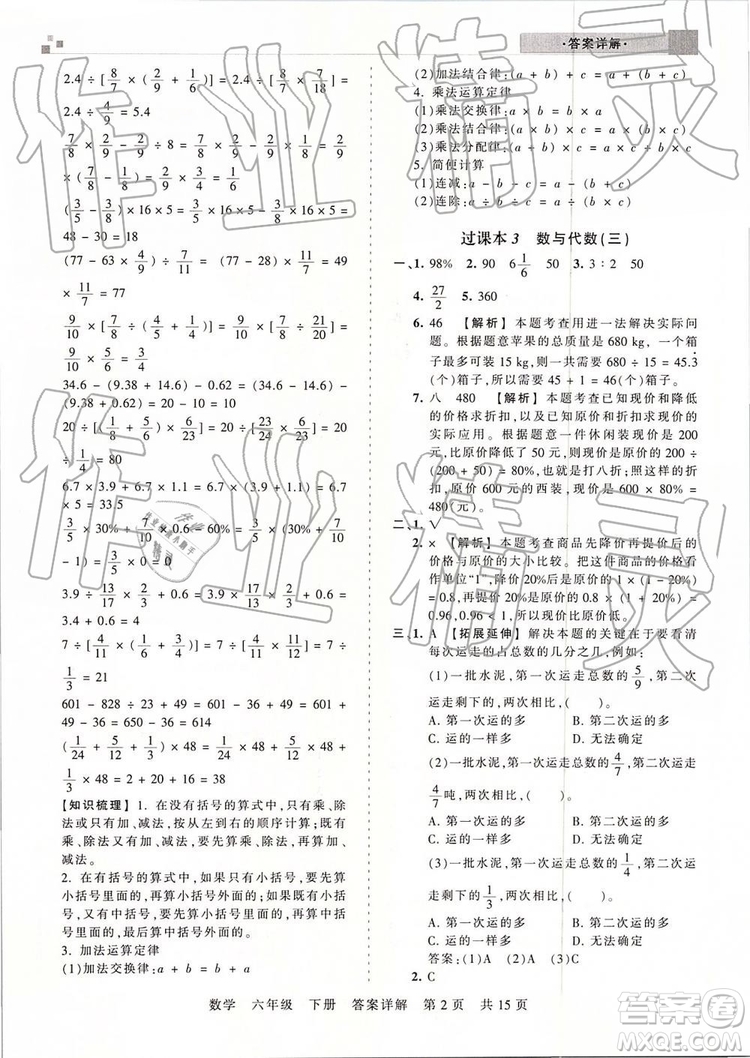 ·答案详解·
2.4 ÷ [8/7 × (2/9 + 1/6)] = 2.4 ÷ [8/7 × 7/18] =
2.4 ÷ 4/9 = 5.4
2/9 × (7/8 - 2/9 ÷ 16/9) = 2/9 × (7/8 - 1/8) = 2/9
× (7/8 - 1/8) = 2/9 × 3/4 = 1/6
(3/5 - 5/16) × 16 × 5 = 3/5 × 16 × 5 - 5/16 × 16 × 5 =
48 - 30 = 18
(77 - 33 ÷ 11/7) ÷ 4/7 = (77 - 21) ÷ 4/7 = 56 ×
11/7 = 77
9/10 × [7/8 ÷ (4/5 + 1/4)] = 9/10 × [7/8 ÷ 21/20] =
9/10 × 5/6 = 3/4
34.6 - (9.38 + 14.6) - 0.62 = (34.6 - 14.6) -
(9.38 + 0.62) = 20 - 10 = 10
20 ÷ [(1/8 + 1/5) × 6/23] = 20 ÷ [13/40 × 6/23] = 20
÷ = 80
6.7 × 3.9 + 1.1 × 6.7 = 6.7 × (3.9 + 1.1) = 6.7
× 5 = 33.5
3/5 × 30% + 7/10 ÷ + 0.6 - 60% = × (30% +
7/10) + (0.6 - 0.6) = × 1 + 0 =
(4/5 - 12/15) × 21/25 = × 0 = 0
3.6 ÷ (1.2 + 0.6) × 5 = 3.6 ÷ 1.8 × 5 = 2 × 5 = 10
3.4 + 9.6 ÷ 0.6 × 0.5 = 3.4 + 16 × 0.5 =
3.4 + 8 = 11.4
7 ÷ [4/11 × (2/3 + 1/4)] = 7 ÷ [4/11 × 11/12] = 7 ÷
1/3 = 21
601 - 828 ÷ 23 + 49 = 601 - 36 + 49 = 601 +
49 - 36 = 614
(1/24 + 5/12 + 1/6) × 48 = 1/24 × 48 + 5/12 × 48 +
1/6 × 48 = 2 + 20 + 8 = 30
【知识梳理】 1. 在没有括号的算式中,只有乘、除
法或只有加、减法,按从左到右的顺序计算;有
乘、除法又有加、减法,要先算乘、除法,再算加、
减法。
2. 在有括号的算式中,如果有小括号,要先算小
括号里面的,再算小括号外面的;如果有中括号,
要先算小括号里面的,再算中括号里面的。
3. 加法运算定律
(1)加法交换律:a + b = b + a
(2)加法结合律:(a + b) + c = a + (b + c)
4. 乘法运算定律
(1)乘法交换律:a × b = b × a
(2)乘法结合律:(a × b) × c = a × (b × c)
(3)乘法分配律:(a + b) × c = a × c + b × c
5. 简便计算
(1)连减:a - b - c = a - (b + c)
(2)连除:a ÷ b ÷ c = a ÷ (b × c)
过课本 3 数与代数(三)
一、1. 98% 2. 90 6 1/6 50 3. 3∶2 50
4. 27/2 5. 360
6. 46 【解析】 本题考查用进一法解决实际问
题。根据题意苹果的总质量是 680 kg,一个箱
子最多可装 15 kg,则一共需要 680 ÷ 15 = 45.3
(个)箱子,所以需要 45 + 1 = 46(个)箱子。
7. 八 480 【解析】 本题考查已知现价和降低
的价格求折扣,以及已知原价和折扣求现价的
实际应用。根据题意一件休闲装现价是 200
元,比原价降低了 50 元,则现价是原价的 200 ÷
(200 + 50) = 80%,也就是打八折;按照这样的折
扣,原价 600 元的西装,现价是 600 × 80% =
480(元)。
二、1. √
2. × 【解析】 本题考查商品先降价再提价后的
价格与原价的大小比较。把这种商品的价格看
作单位"1",降价 20% 后是原价的 1 × (1 - 20%)
= 0.8,再提价 20% 后是原价的 0.8 × (1 + 20%)
= 0.96,0.96 < 1,所以现价比原价低。
三、1. A 【拓展延伸】 解决本题的关键在于要看清
每次运走的占总数的几分之几,例如:
(1)一批水泥,第一次运走总数的 5/9,第二次
运走剩下的,两次相比,( )。
A. 第一次运的多 B. 第二次运的多
C. 运的一样多 D. 无法确定
(2)一批水泥,第一次运走总数的 4/7,第二次运走
4/7 吨,两次相比,( )。
A. 第一次运的多 B. 第二次运的多
C. 运的一样多 D. 无法确定
(3)一批水泥,第一次运走总数的 1/4,第二次
运走剩下的 1/3,两次相比,( )。
A. 第一次运的多 B. 第二次运的多
C. 运的一样多 D. 无法确定
答案:(1)A (2)D (3)C
2. C
数学 六年级 下册 答案详解 第 2 页 共 15 页
作业精灵